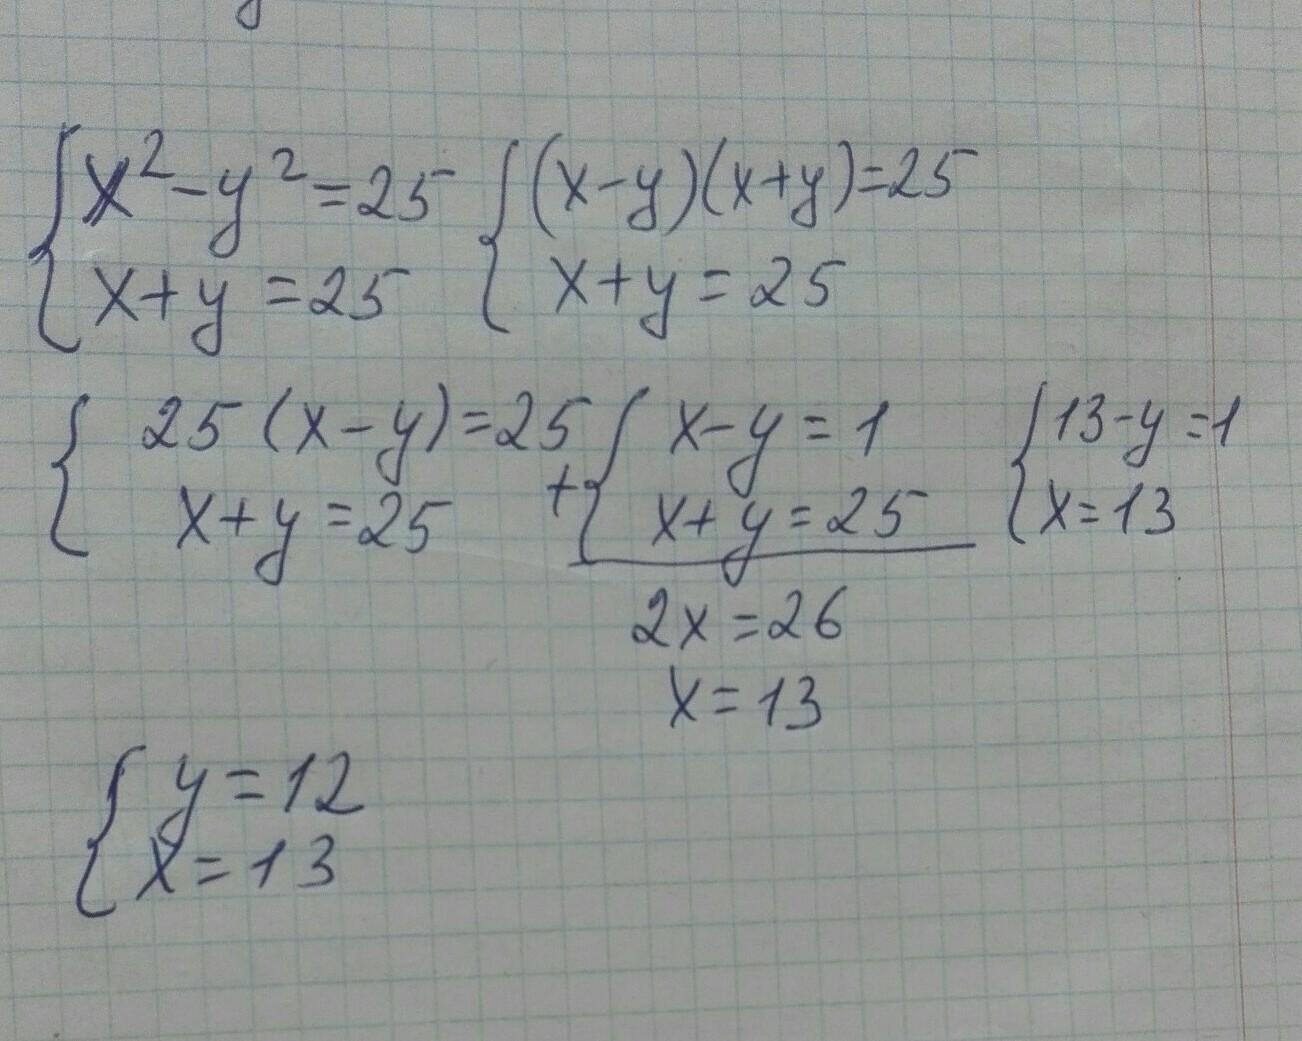 {x²-y²=25 {(x-y)(x+y)=25
x+y=25 x+y=25
{25(x-y)=25 +{x-y=1 {13-y=1
x+y=25 x+y=25 x=13
2x=26
x=13
{y=12
x=13